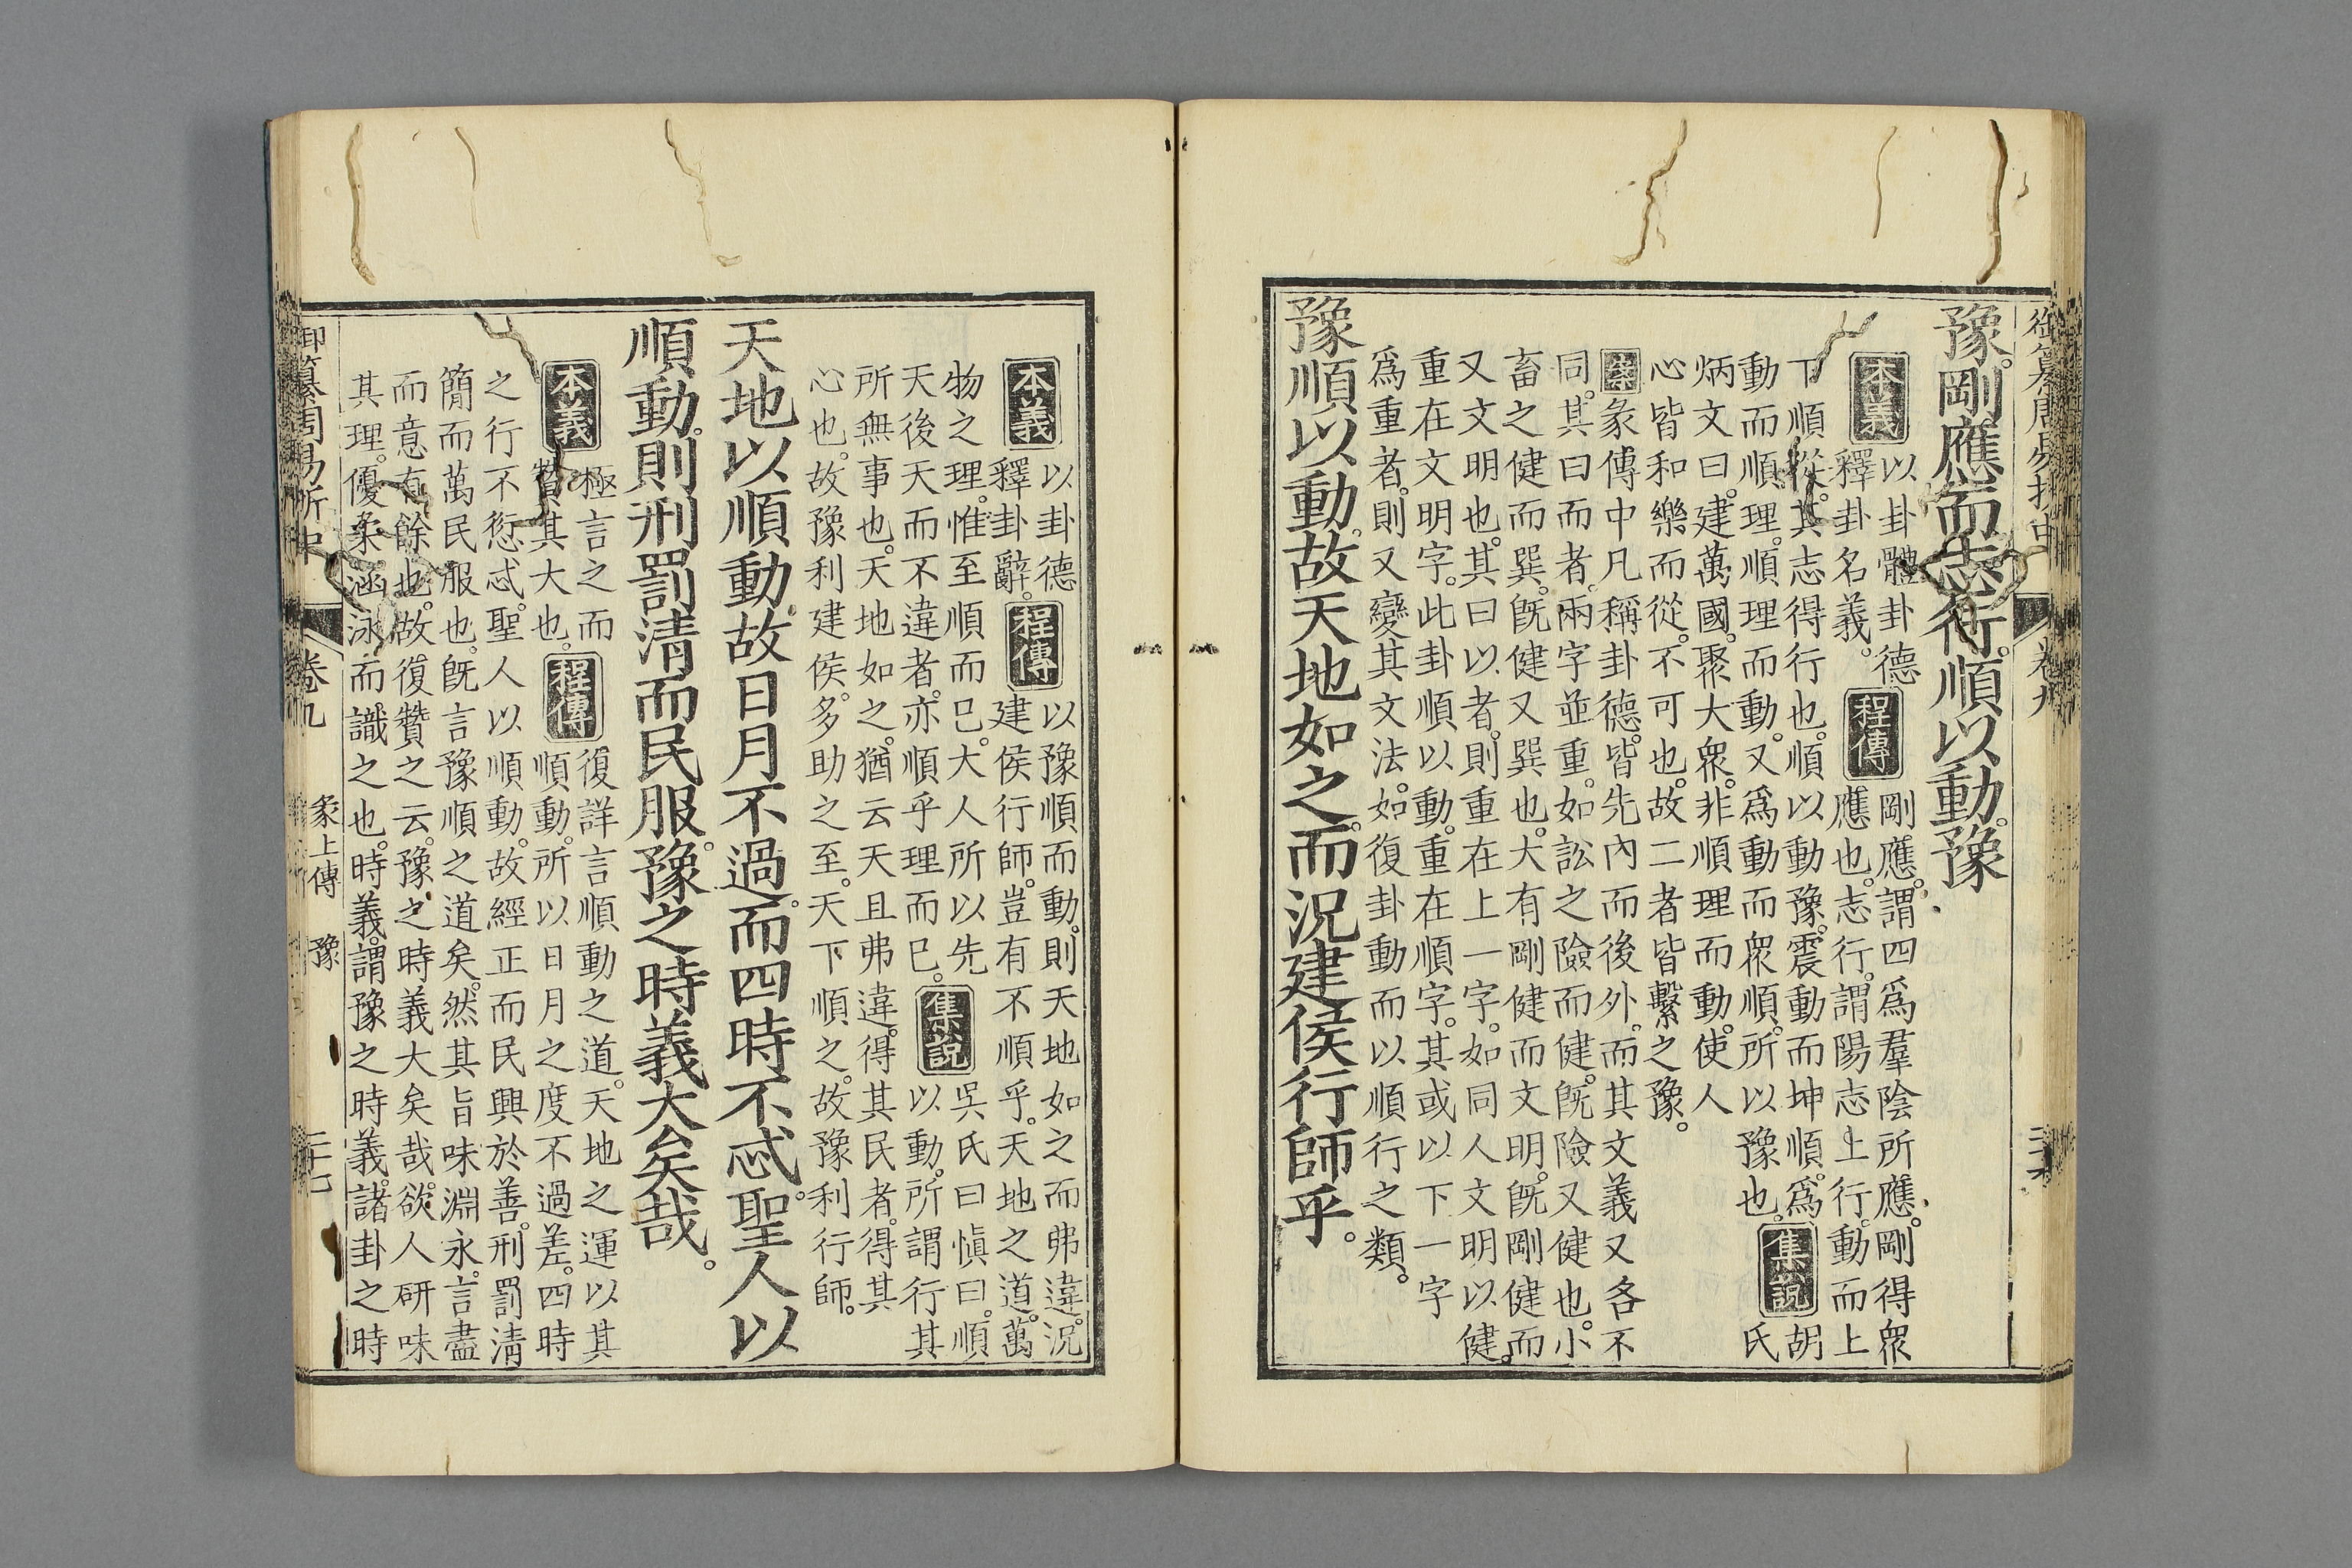 豫。剛應而志行。順以動。豫
本義
以卦體卦德
釋卦名義。
程傳
剛應。謂四爲羣陰所應。剛得衆
應也。志行。謂陽志上行。動而上
下順從。其志得行也。順以動豫。震動而坤順。爲
動而順理。順理而動。又爲動而衆順。所以豫也。
集說
胡
氏
炳文曰。建萬國。聚大衆。非順理而動。使人
心皆和樂而從。不可也。故二者皆繫之豫。
案彖傳中凡稱卦德。皆先內而後外。而其文義又各不
同。其曰而者。兩字並重。如訟之險而健。旣險又健也。小
畜之健而巽。旣健又巽也。大有剛健而文明。旣剛健而
又文明也。其曰以者。則重在上一字。如同人文明以健。
重在文明字。此卦順以動。重在順字。其或以下一字
爲重者。則又變其文法。如復卦動而以順行之類。
豫順以動。故天地如之。而況建侯行師乎。
御纂周易折中
卷九
本義
以卦德
釋卦辭。
程傳
以豫順而動。則天地如之而弗違。況
建侯行師。豈有不順乎。天地之道。萬
物之理。惟至順而已。大人所以先
天後天而不違者。亦順乎理而已。
集說
吳氏曰愼曰。順
以動。所謂行其
所無事也。天地如之。猶云天且弗違。得其民者。得其
心也。故豫利建侯。多助之至。天下順之。故豫利行師。
天地以順動。故日月不過。而四時不忒。聖人以
順動。則刑罰清而民服。豫之時義大矣哉。
本義
極言之而
贊其大也。
程傳
復詳言順動之道。天地之運以其
順動。所以日月之度不過差。四時
之行不愆忒。聖人以順動。故經正而民興於善。刑罰清
簡而萬民服也。旣言豫順之道矣。然其旨味淵永。言盡
而意有餘也。故復贊之云。豫之時義大矣哉。欲人研味
其理。優柔涵泳而識之也。時義。謂豫之時義。諸卦之時
御纂周易折中
卷九
彖上傳
豫